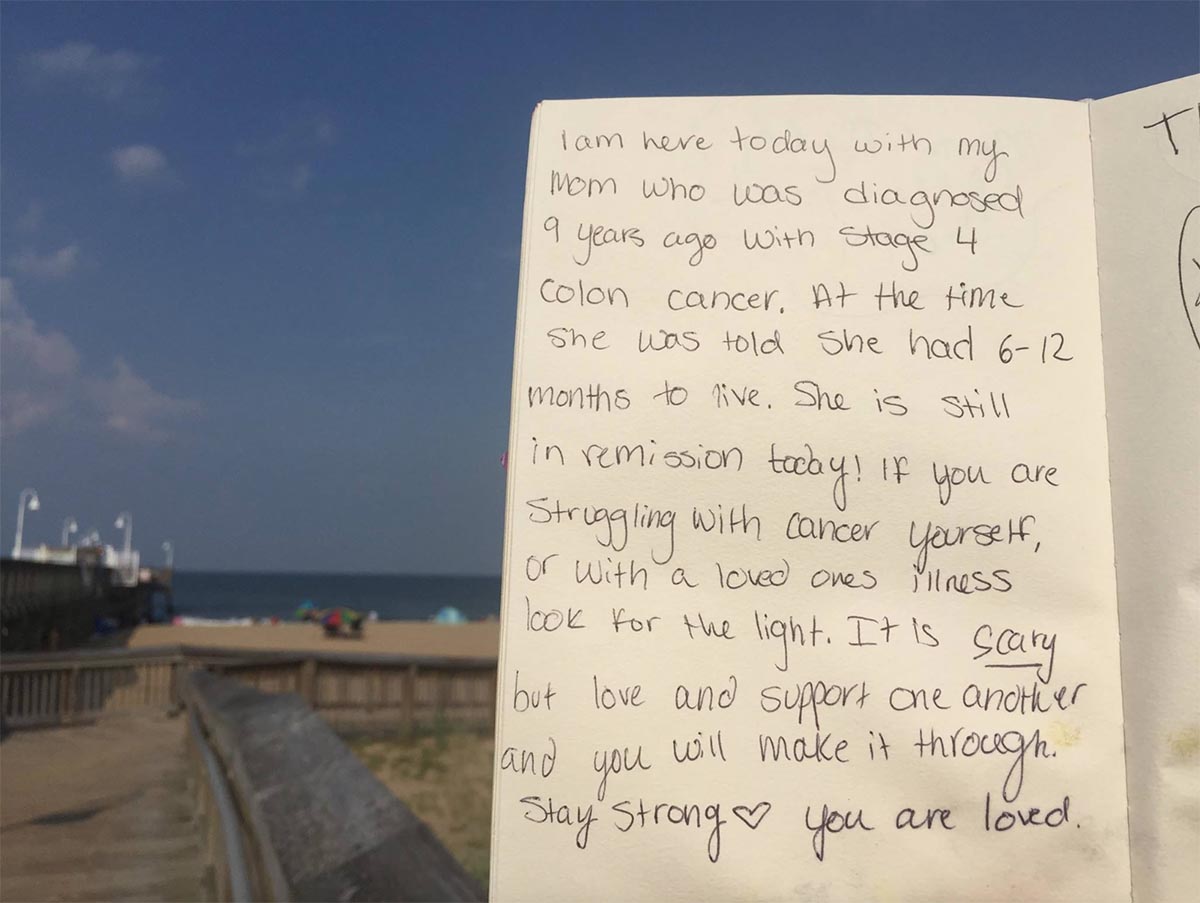 I am here today with my
Mom who was diagnosed
9 years ago with Stage 4
Colon cancer. At the time
she was told she had 6-12
months to live. She is still
in remission today! If you are
Struggling with cancer yourself,
or with a loved ones illness
look for the light. It is scary
but love and support one another
and you will make it through.
Stay Strong ♡ you are loved.